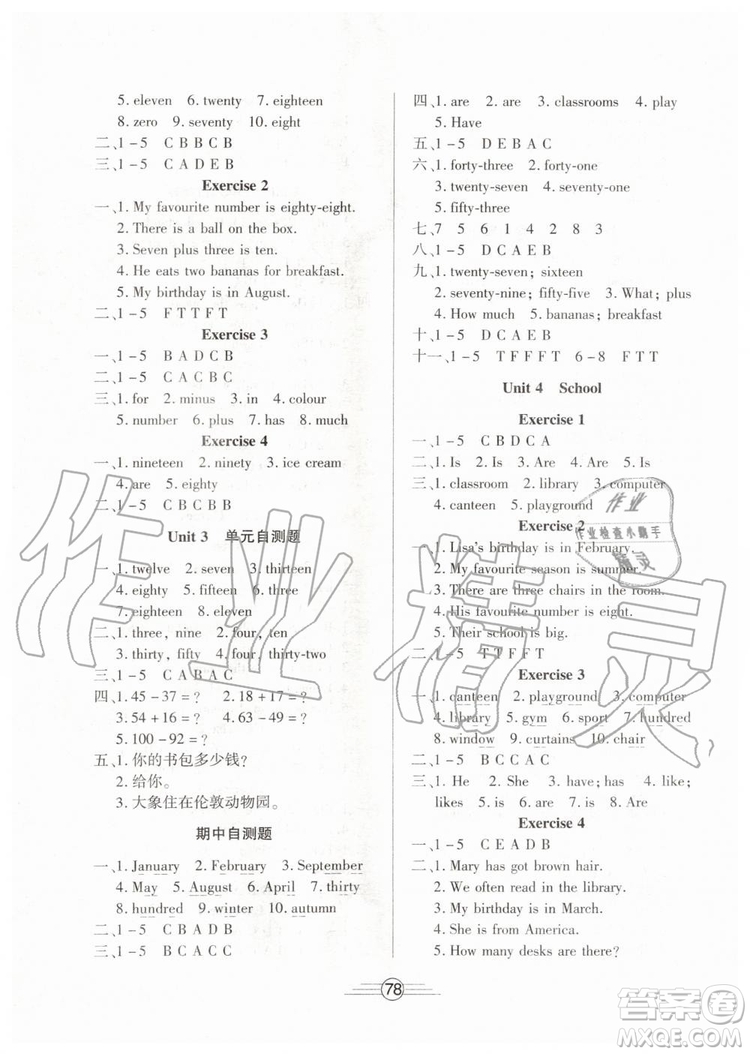 5. eleven 6. twenty 7. eighteen
8. zero 9. seventy 10. eight
二、1-5 C B B C B
三、1-5 C A D E B
Exercise 2
一、1. My favourite number is eighty-eight.
2. There is a ball on the box.
3. Seven plus three is ten.
4. He eats two bananas for breakfast.
5. My birthday is in August.
二、1-5 F T T F T
Exercise 3
一、1-5 B A D C B
二、1-5 C A C B C
三、1. for 2. minus 3. in 4. colour
5. number 6. plus 7. has 8. much
Exercise 4
一、1. nineteen 2. ninety 3. ice cream
4. are 5. eighty
二、1-5 C B B C B
Unit 3 单元自测题
一、1. twelve 2. seven 3. thirteen
4. eighty 5. fifteen 6. eight
7. eighteen 8. eleven
二、1. three, nine 2. four, ten
3. thirty, fifty 4. four, thirty-two
三、1-5 C A B A C
四、1. 45-37=? 2. 18+17=?
3. 54+16=? 4. 63-49=?
5. 100-92=?
五、1. 你的书包多少钱?
2. 给你。
3. 大象住在伦敦动物园。
期中自测题
一、1. January 2. February 3. September
4. May 5. August 6. April 7. thirty
8. hundred 9. winter 10. autumn
二、1-5 C B A D B
三、1-5 B C A C C
四、1. are 2. are 3. classrooms 4. play
5. Have
五、1-5 D E B A C
六、1. forty-three 2. forty-one
3. twenty-seven 4. twenty-six
5. fifty-three
七、7 5 6 1 4 2 8 3
八、1-5 D C A E B
九、1. twenty-seven; sixteen
2. seventy-nine; fifty-five 3. What; plus
4. How much 5. bananas; breakfast
十、1-5 D C A E B
十一、1-5 T F F F T 6-8 F T T
Unit 4 School
Exercise 1
一、1-5 C B D C A
二、1. Is 2. Is 3. Are 4. Are 5. Is
三、1. classroom 2. library 3. computer
4. canteen 5. playground
Exercise 2
一、1. Lisa's birthday is in February.
2. My favourite season is summer.
3. There are three chairs in the room.
4. His favourite number is eight.
5. Their school is big.
二、1-5 T T F F T
Exercise 3
一、1. canteen 2. playground 3. computer
4. library 5. gym 6. sport 7. hundred
8. window 9. curtains 10. chair
二、1-5 B C C A C
三、1. He 2. She 3. have; has 4. like;
likes 5. Is 6. Are
Exercise 4
一、1-5 C E A D B
二、1. Mary has got brown hair.
2. We often read in the library.
3. My birthday is in March.
4. She is from America.
5. How many desks are there?
78
作业精灵
作业
作业检查小帮手
精灵
答案圈
MXQE.COM